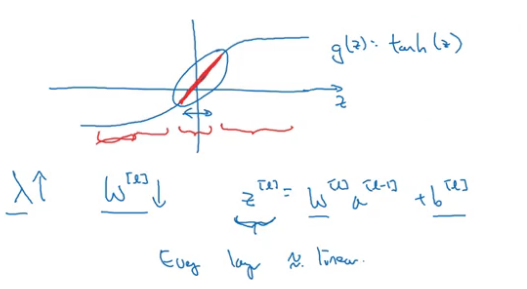 g(z) = tanh(z)
z
λ↑ W^[l]↓ z^[l] = W^[l] a^[l-1] + b^[l]
Every layer ≈ linear.